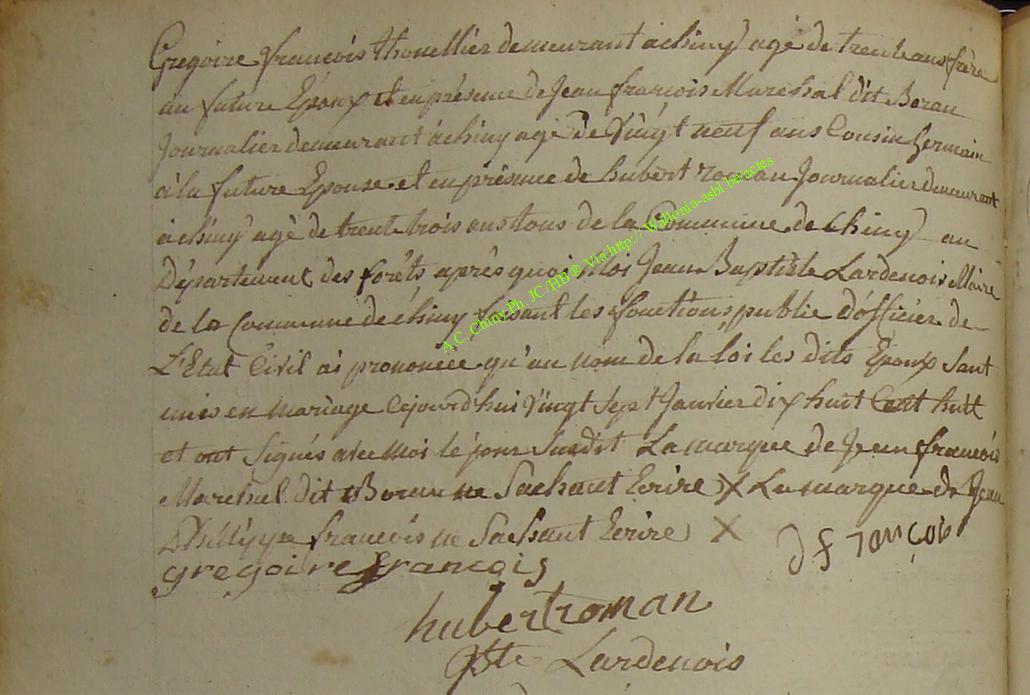 Gregoire françois thonellier demeurant a chiny agé de trente ans frère
au future Epoux et en présence de Jean françois Marechal dit Boran
Journalier demeurant à chiny agé de Vingt neuf ans Cousin Germain
à la future Epouse et en présence de hubert roman Journalier demeurant
à chiny agé de trente trois ans tous de la Commune de Chiny au
Département des forêts, après quoi Moi Jean Baptiste Lardenois Maire
de la Commune de chiny faisant les fonctions publie d'officier de
L'Etat Civil ai prononcée qu'au nom de la loi les dits Epoux Sont
unis en mariage cejourd'hui Vingt Sept Janvier dix huit Cent huit
et ont Signés avec Moi le jour Susdit La marque de Jean françois
Marechal dit Boran ne Sachant Ecrire X La marque de Jean
Phillippe françois ne Sachant Ecrire X
d f rançois
gregoire françois
hubert roman
Bste Lardenois
A.C. Chiny Ph. JC/HB ® Via http://Wallonia-asbl.be/actes